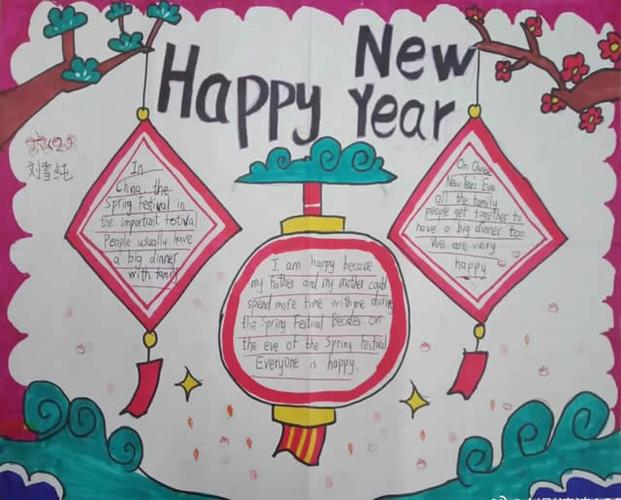 Happy New Year
刘雪纯
In
China, the
Spring Festival in
the important festival
People usually have
a big dinner
with family
I am happy because
my father and my mother could
spend more time with me during
the Spring Festival Besides on
the eve of the Spring Festival
Everyone is happy.
On
New Years Eve
all the family
people get together to
have a big dinner too.
We are very
happy